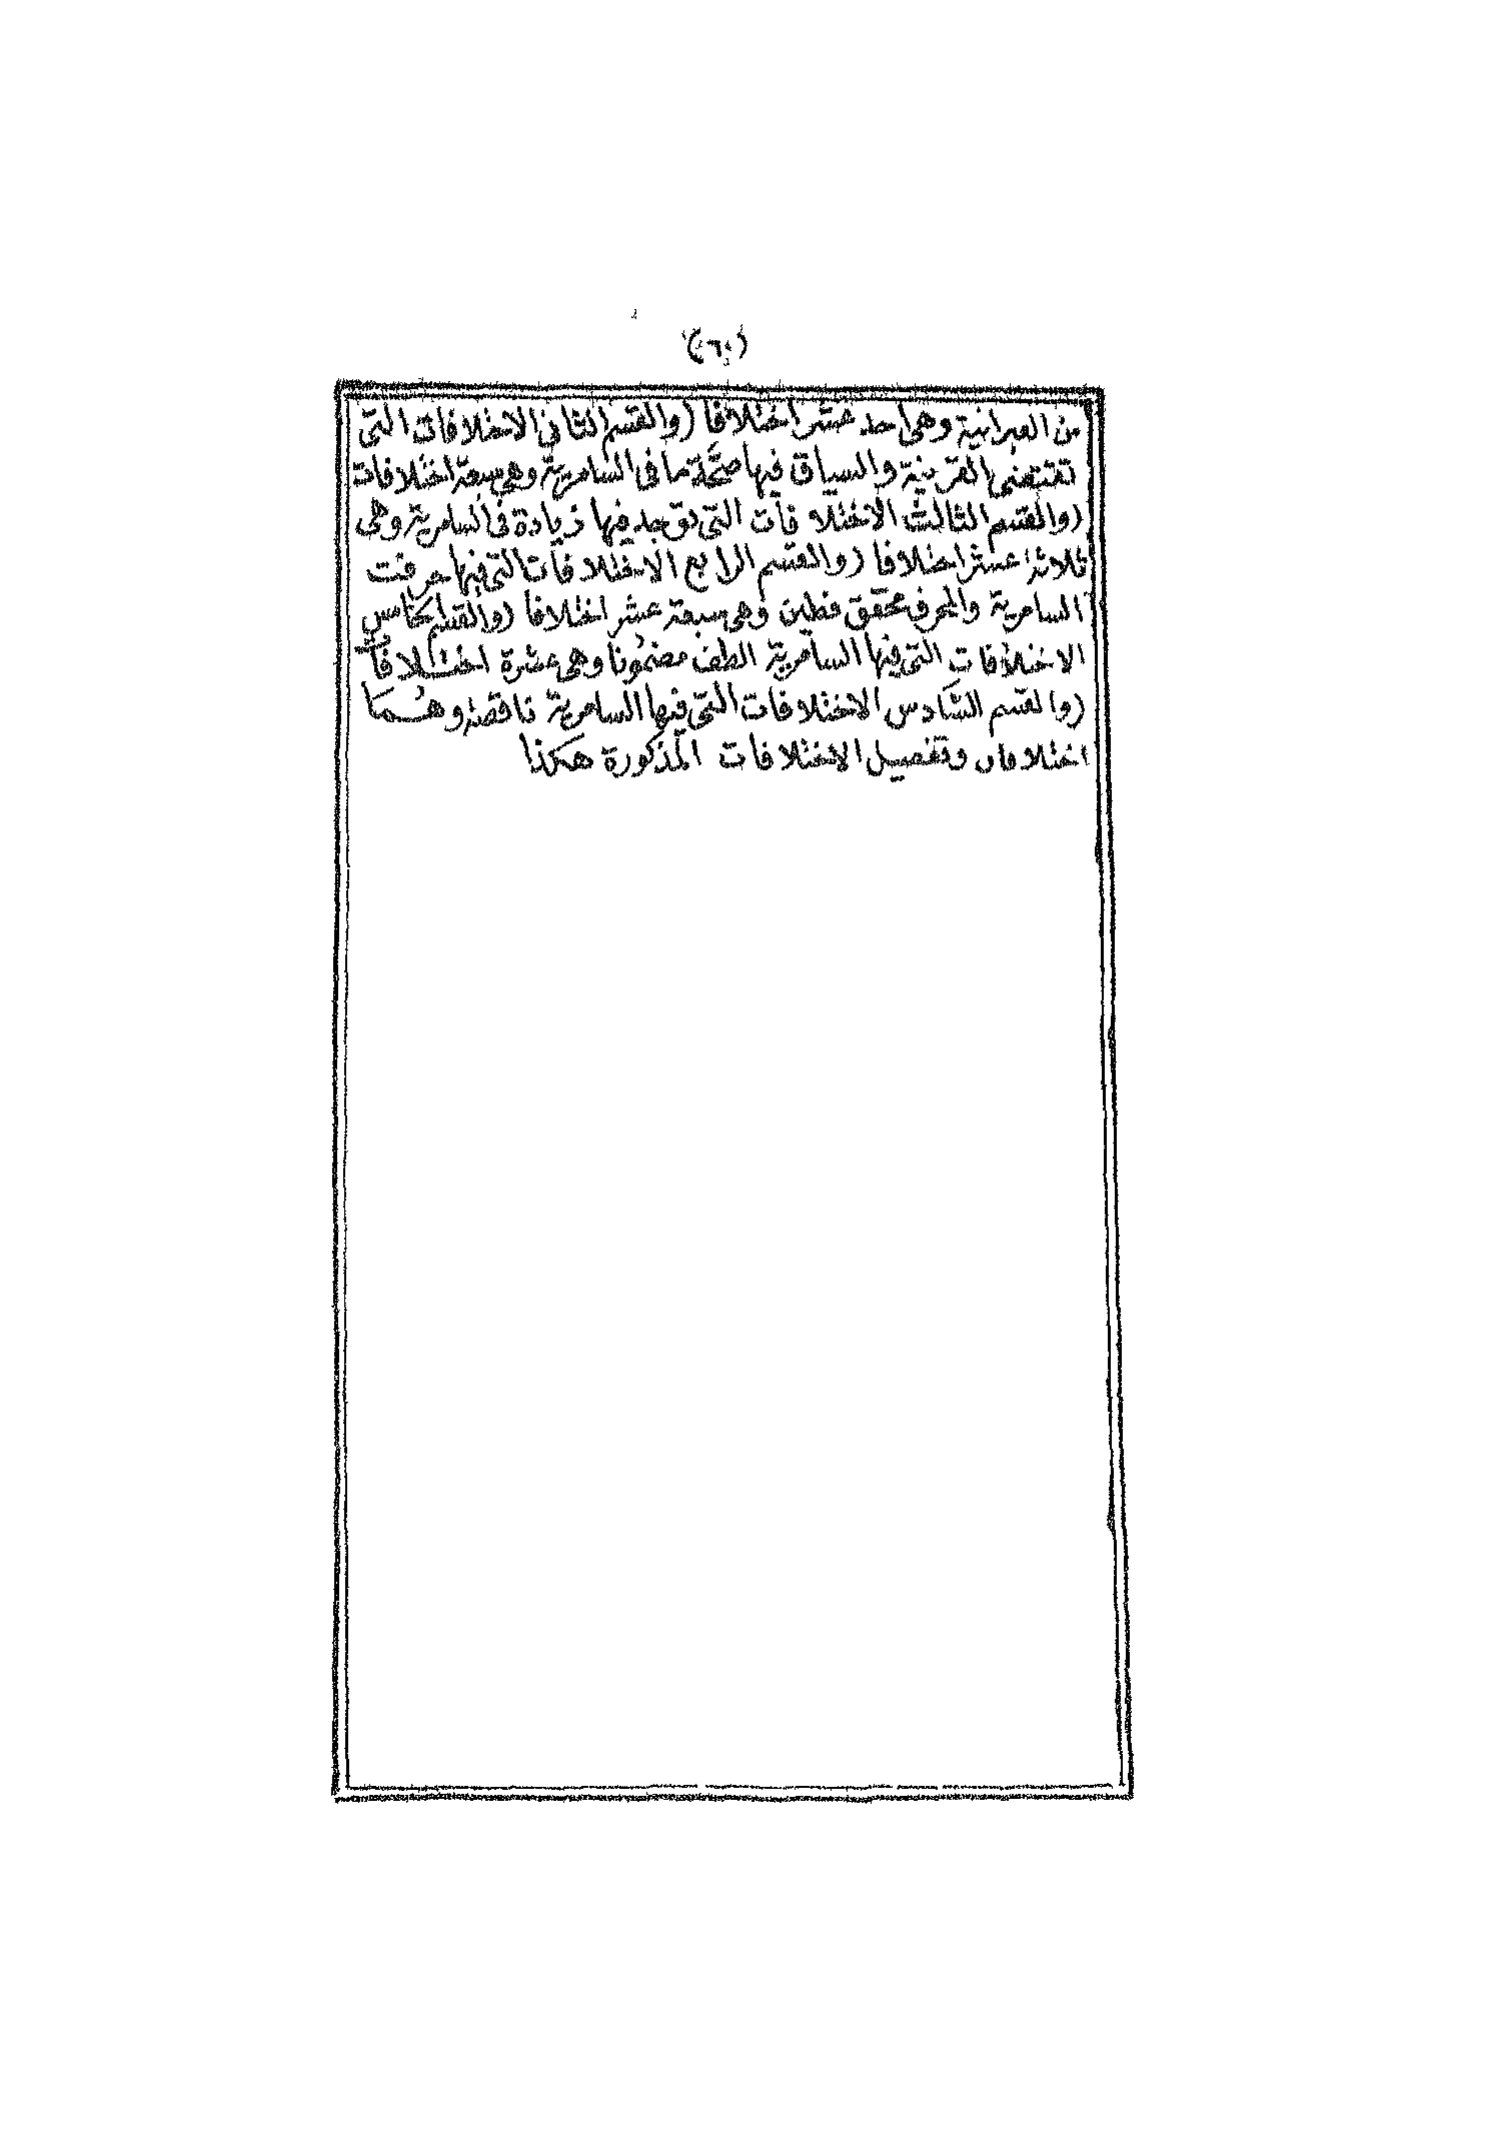 (٦٠)
من العبرانية وهى احد عشر اختلافا (والقسم الثانى الاختلافات التى
تقتضى القرينة والسياق فيها صحّة ما فى السّامرية وهى سبعة اختلافات
(والقسم الثالث الاختلافات التى توجد فيها زيادة فى السامرية وهى
ثلاثة عشر اختلافا (والقسم الرابع الاختلافات التى فيها حرفت
السامرية والمحرف محقق فطين وهى سبعة عشر اختلافا (والقسم الخامس
الاختلافات التى فيها السامرية الطف مضمُونا وهى عشرة اختلافات
(والقسم السّادس الاختلافات التى فيها السامرية ناقصة وهُما
اختلافان وتفصيل الاختلافات المذكورة هكذا